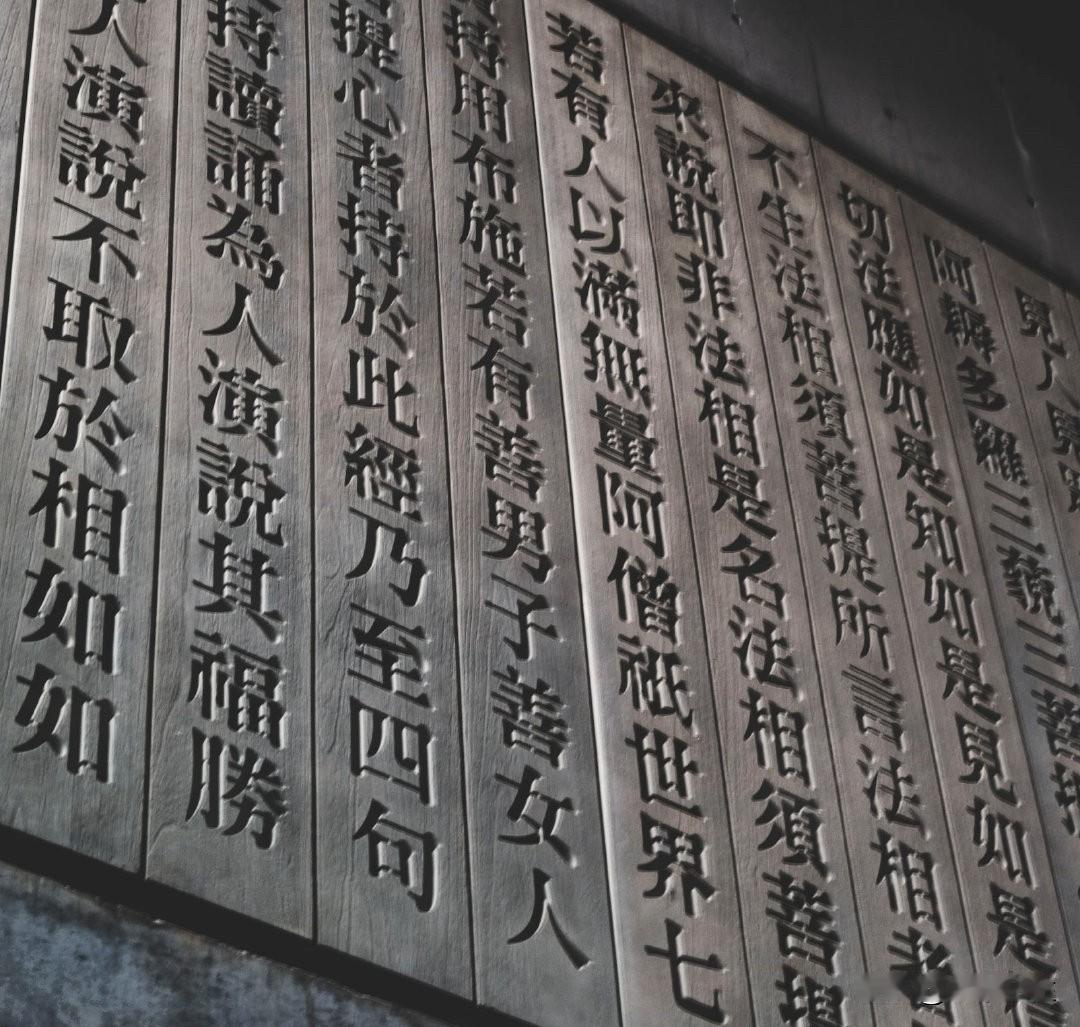 見人見
阿耨多羅三藐三菩提
切法應如是知如是見如是
不生法相須菩提所言法相者
來說即非法相是名法相須菩提
若有人以滿無量阿僧祇世界七
持用布施若有善男子善女人
提心者持於此經乃至四句
持讀誦為人演說其福勝
人演說不取於相如如